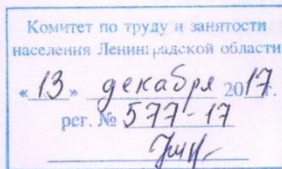 Комитет по труду и занятости
населения Ленинградской области
«13» декабря 2017г.
рег. № 577-17